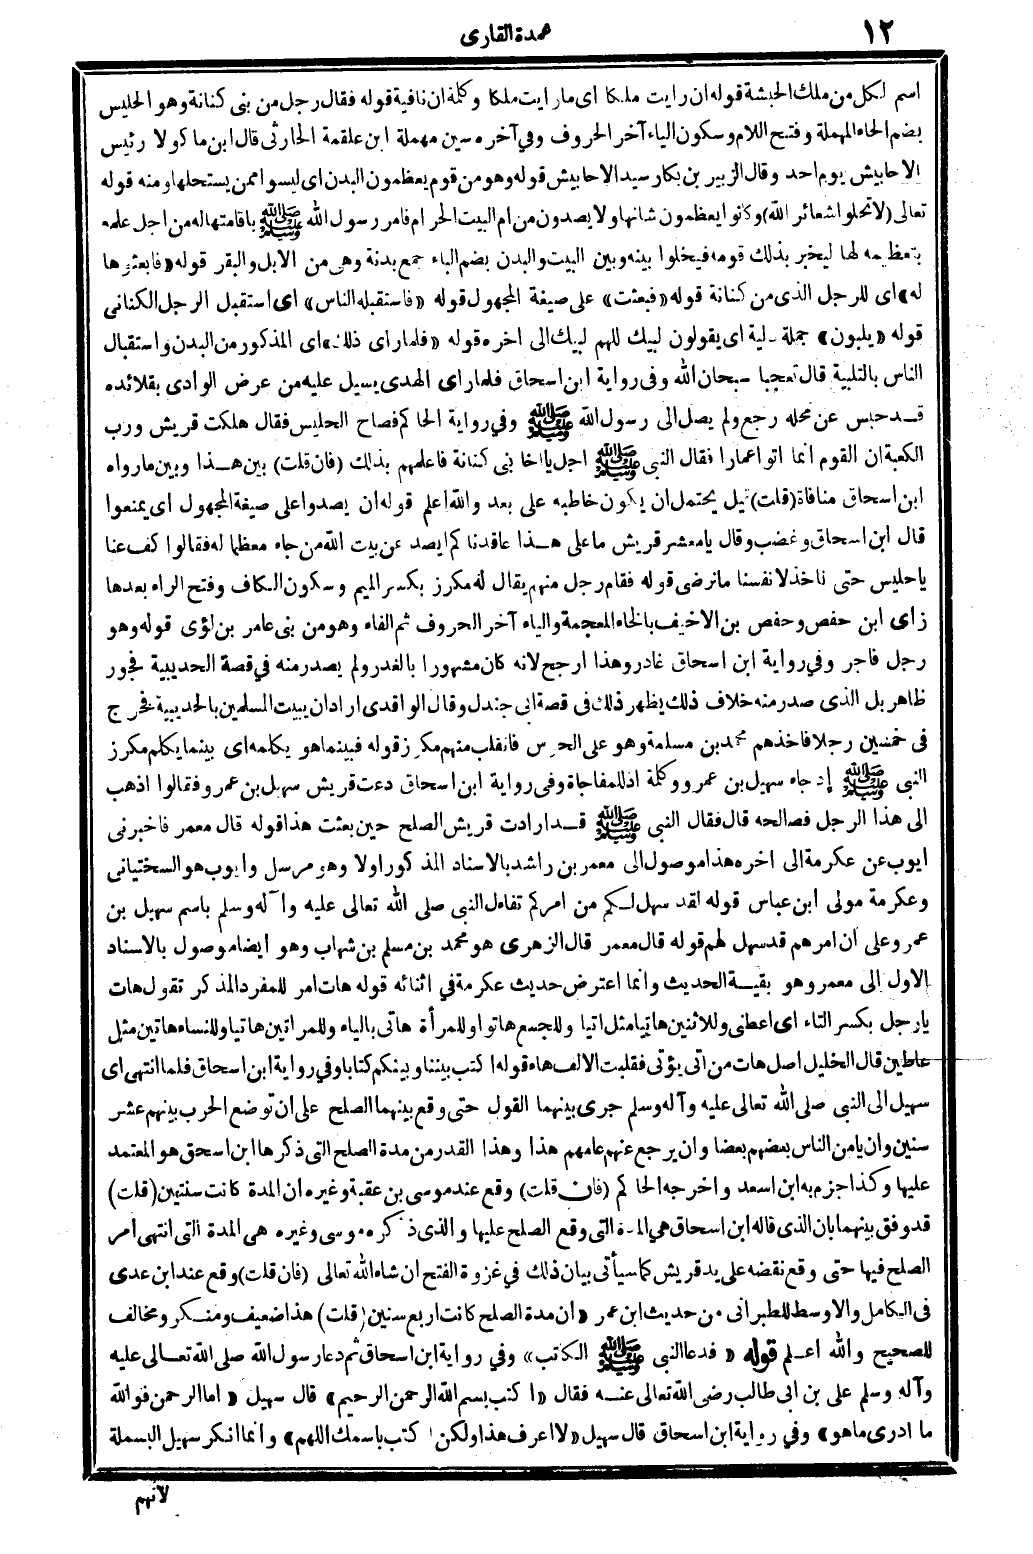 ١٢
عمدة القارى
اسم لكل من ملك الحبشة قوله ان رايت ملكا اى مارايت ملكا وكلمة ان نافية قوله فقال رجل من بنى كنانة وهو الحليس
بضم الحاء المهملة وفتح اللام وسكون الياء آخر الحروف وفى آخره سين مهملة ابن علقمة الحارثى قال ابن ماكولا رئيس
الاحابيش يوم احد وقال الزبير بن بكار سيد الاحابيش قوله وهو من قوم يعظمون البدن اى ليسوا ممن يستحلها ومنه قوله
تعالى (لا تحلوا شعائر الله) وكانوا يعظمون شانها ولا يصدون من ام البيت الحرام فامر رسول الله ﷺ باقامتها له من اجل علمه
بتعظيمه لها ليخبر بذلك قومه فيخلوا بينه وبين البيت والبدن بضم الباء جمع بدنة وهى من الابل والبقر قوله «فابعثوها
له» اى للرجل الذى من كنانة قوله «فبعثت» على صيغة المجهول قوله «فاستقبله الناس» اى استقبل الرجل الكنانى
قوله «يلبون» جملة حالية اى يقولون لبيك اللهم لبيك الى اخره قوله «فلما راى ذلك» اى المذكور من البدن واستقبال
الناس بالتلبية قال تعجبا سبحان الله وفى رواية ابن اسحاق فلما راى الهدى يسيل عليه من عرض الوادى بقلائده
قد حبس عن محله رجع ولم يصل الى رسول الله ﷺ وفى رواية الحاكم فصاح الحليس فقال هلكت قريش ورب
الكعبة ان القوم انما اتوا عمارا فقال النبى ﷺ اجل يا اخا بنى كنانة فاعلمهم بذلك (فان قلت) بين هذا وبين مارواه
ابن اسحاق منافاة (قلت) قيل يحتمل ان يكون خاطبه على بعد والله اعلم قوله ان يصدوا على صيغة المجهول اى يمنعوا
قال ابن اسحاق وغضب وقال يا معشر قريش ما على هذا عاقدناكم ايصد عن بيت الله من جاء معظما له فقالوا كف عنا
ياحليس حتى ناخذ لانفسنا مانرضى قوله فقام رجل منهم يقال له مكرز بكسر الميم وسكون الكاف وفتح الراء بعدها
زاى ابن حفص وحفص بن الاخيف بالخاء المعجمة والياء آخر الحروف ثم الفاء وهو من بنى عامر بن لؤى قوله وهو
رجل فاجر وفى رواية ابن اسحاق غادر وهذا ارجح لانه كان مشهورا بالغدر ولم يصدر منه فى قصة الحديبية فجور
ظاهر بل الذى صدر منه خلاف ذلك يظهر ذلك فى قصة ابى جندل وقال الواقدى اراد ان يبيت المسلمين بالحديبية فخرج
فى خمسين رجلا فاخذهم محمد بن مسلمة وهو على الحرس فانفلت منهم مكرز قوله فبينما هو يكلمه اى بينما يكلم مكرز
النبى ﷺ إذ جاء سهيل بن عمرو وكلمة اذ للمفاجاة وفى رواية ابن اسحاق دعت قريش سهيل بن عمرو فقالوا اذهب
الى هذا الرجل فصالحه قال فقال النبى ﷺ قد ارادت قريش الصلح حين بعثت هذا قوله قال معمر فاخبرنى
ايوب عن عكرمة الى اخره هذا موصول الى معمر بن راشد بالاسناد المذكور اولا وهو مرسل وايوب هو السختيانى
وعكرمة مولى ابن عباس قوله لقد سهل لكم من امركم تفاءل النبى صلى الله تعالى عليه وآله وسلم باسم سهيل بن
عمرو على ان امرهم قد سهل لهم قوله قال معمر قال الزهرى هو محمد بن مسلم بن شهاب وهو ايضا موصول بالاسناد
الاول الى معمر وهو بقية الحديث وانما اعترض حديث عكرمة فى اثنائه قوله هات امر للمفرد المذكر تقول هات
يارجل بكسر التاء اى اعطنى وللاثنين هاتيا مثل اتيا وللجمع هاتوا وللمرأة هاتى بالياء وللمراتين هاتيا وللنساء هاتين مثل
عاطين قال الخليل اصل هات من اتى يؤتى فقلبت الالف هاء قوله اكتب بيننا وبينكم كتابا وفى رواية ابن اسحاق فلما انتهى اى
سهيل الى النبى صلى الله تعالى عليه وآله وسلم جرى بينهما القول حتى وقع بينهما الصلح على ان توضع الحرب بينهم عشر
سنين وان يامن الناس بعضهم بعضا وان يرجع عنهم عامهم هذا وهذا القدر من مدة الصلح التى ذكرها ابن اسحق هو المعتمد
عليها وكذا جزم به ابن اسعد واخرجه الحاكم (فان قلت) وقع عند موسى بن عقبة وغيره ان المدة كانت سنتين (قلت)
قد وفق بينهما بان الذى قاله ابن اسحاق هى المدة التى وقع الصلح عليها والذى ذكره موسى وغيره هى المدة التى انتهى امر
الصلح فيها حتى وقع نقضه على يد قريش كما سيأتى بيان ذلك فى غزوة الفتح ان شاء الله تعالى (فان قلت) وقع عند ابن عدى
فى الكامل والاوسط للطبرانى من حديث ابن عمر «ان مدة الصلح كانت اربع سنين (قلت) هذا ضعيف ومنكر ومخالف
للصحيح والله اعلم قوله «فدعا النبى ﷺ الكاتب» وفى رواية ابن اسحاق ثم دعا رسول الله صلى الله تعالى عليه
وآله وسلم على بن ابى طالب رضى الله تعالى عنه فقال «اكتب بسم الله الرحمن الرحيم» قال سهيل «اما الرحمن فوالله
ما ادرى ماهو» وفى رواية ابن اسحاق قال سهيل «لا اعرف هذا ولكن اكتب باسمك اللهم» وانما انكر سهيل البسملة
لانهم